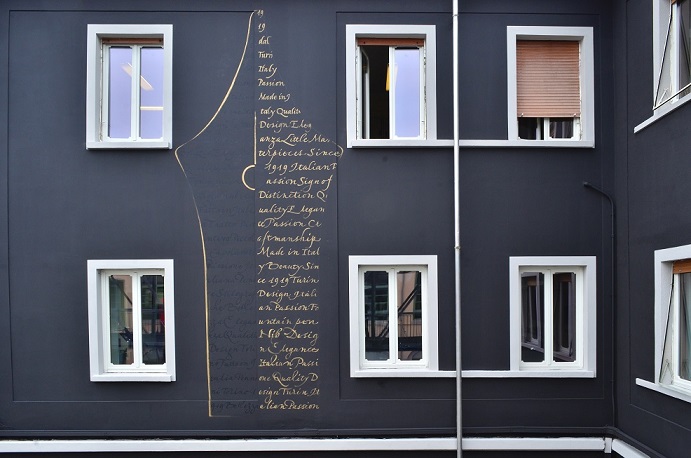 19
19
dal
Turi
Italy
Passion
Made in I
taly Qualit
Design Eleg
anza Little Ma
terpieces - Since
1919 Italian P
assion Sign of
Distinction Q
uality Elegan
ce Passion Cr
aftmanship
Made in Ital
y Beauty Sin
ce 1919 Turin
Design Itali
an Passion Fo
untain pen
Nib - Desig
n Elegance
Italian Passi
one Quality D
esign Turin It
alian Passion